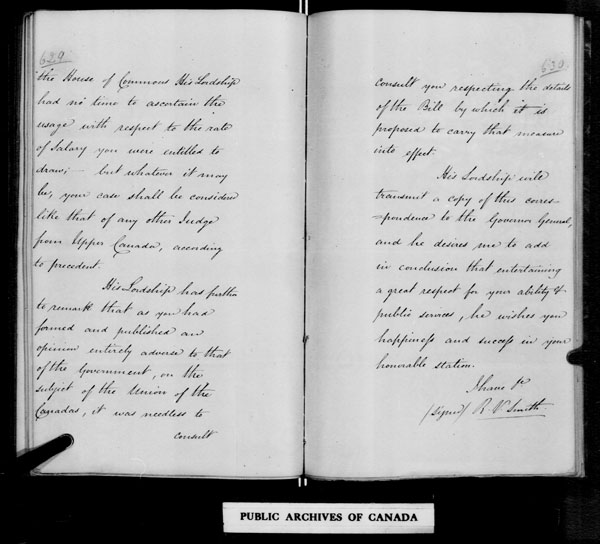 629
the House of Commons His Lordship
had no time to ascertain the
usage with respect to the rate
of Salary you were entitled to
draw; – but whatever it may
be, your case shall be considered
like that of any other Judge
from Upper Canada, according
to precedent.
His Lordship has further
to remark that as you had
formed and published an
opinion entirely adverse to that
of the Government, on the
subject of the Union of the
Canadas, it was needless to
consult
630
consult you respecting the details
of the Bill by which it is
proposed to carry that measure
into effect
His Lordship will
transmit a copy of this corres-
=pondence to the Governor General,
and he desires me to add
in conclusion that entertaining
a great respect for your ability &
public services, he wishes you
happiness and success in your
honorable station.
I have &c
(signed) R. V. Smith.
PUBLIC ARCHIVES OF CANADA